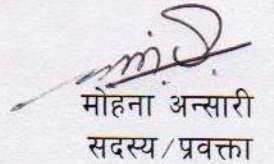 मोहना अन्सारी
सदस्य/प्रवक्ता